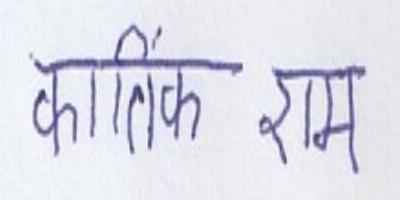 कार्तिक राम